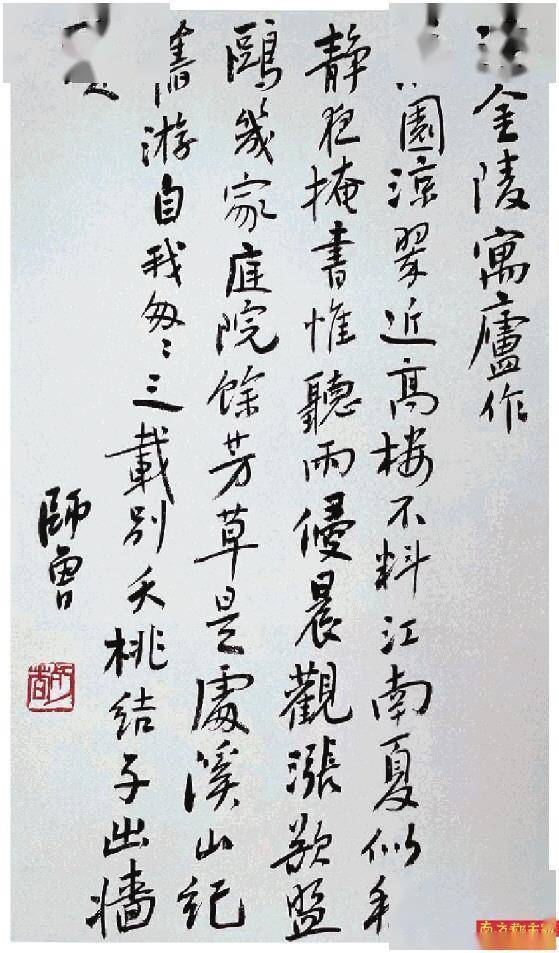 金陵寓廬作
園涼翠近高楼不料江南夏似
静夜掩書惟聽雨侵晨觀漲欲盟
鷗幾家庭院餘芳草是處溪山紀
舊游自我匆々三載別夭桃結子出牆
師曾
南方都市